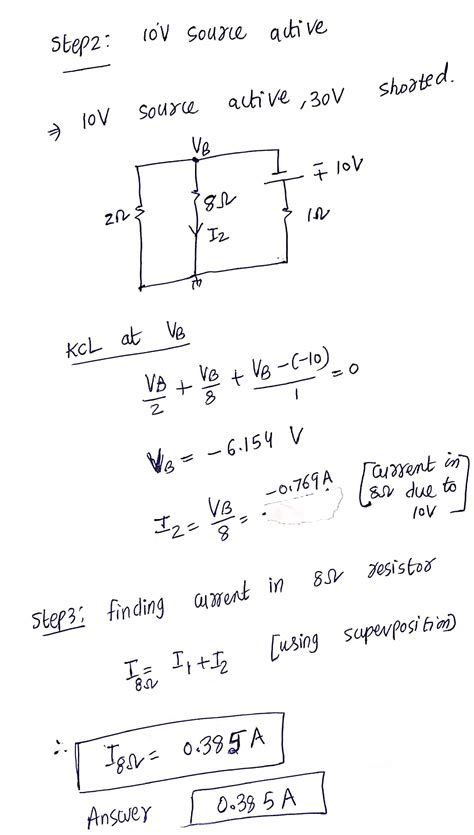 Step2: 10V source active
⇒ 10V source active, 30V shorted.
V_B
∓ 10V
8Ω
2Ω
1Ω
I₂
KCL at V_B
V_B/2 + V_B/8 + (V_B-(-10))/1 = 0
V_B = -6.154 V
I₂ = V_B/8 = -0.769A [current in 8Ω due to 10V]
Step3: finding current in 8Ω resistor
I_8Ω = I₁ + I₂ [using superposition]
∴ I_8Ω = 0.385 A
Answer 0.385 A